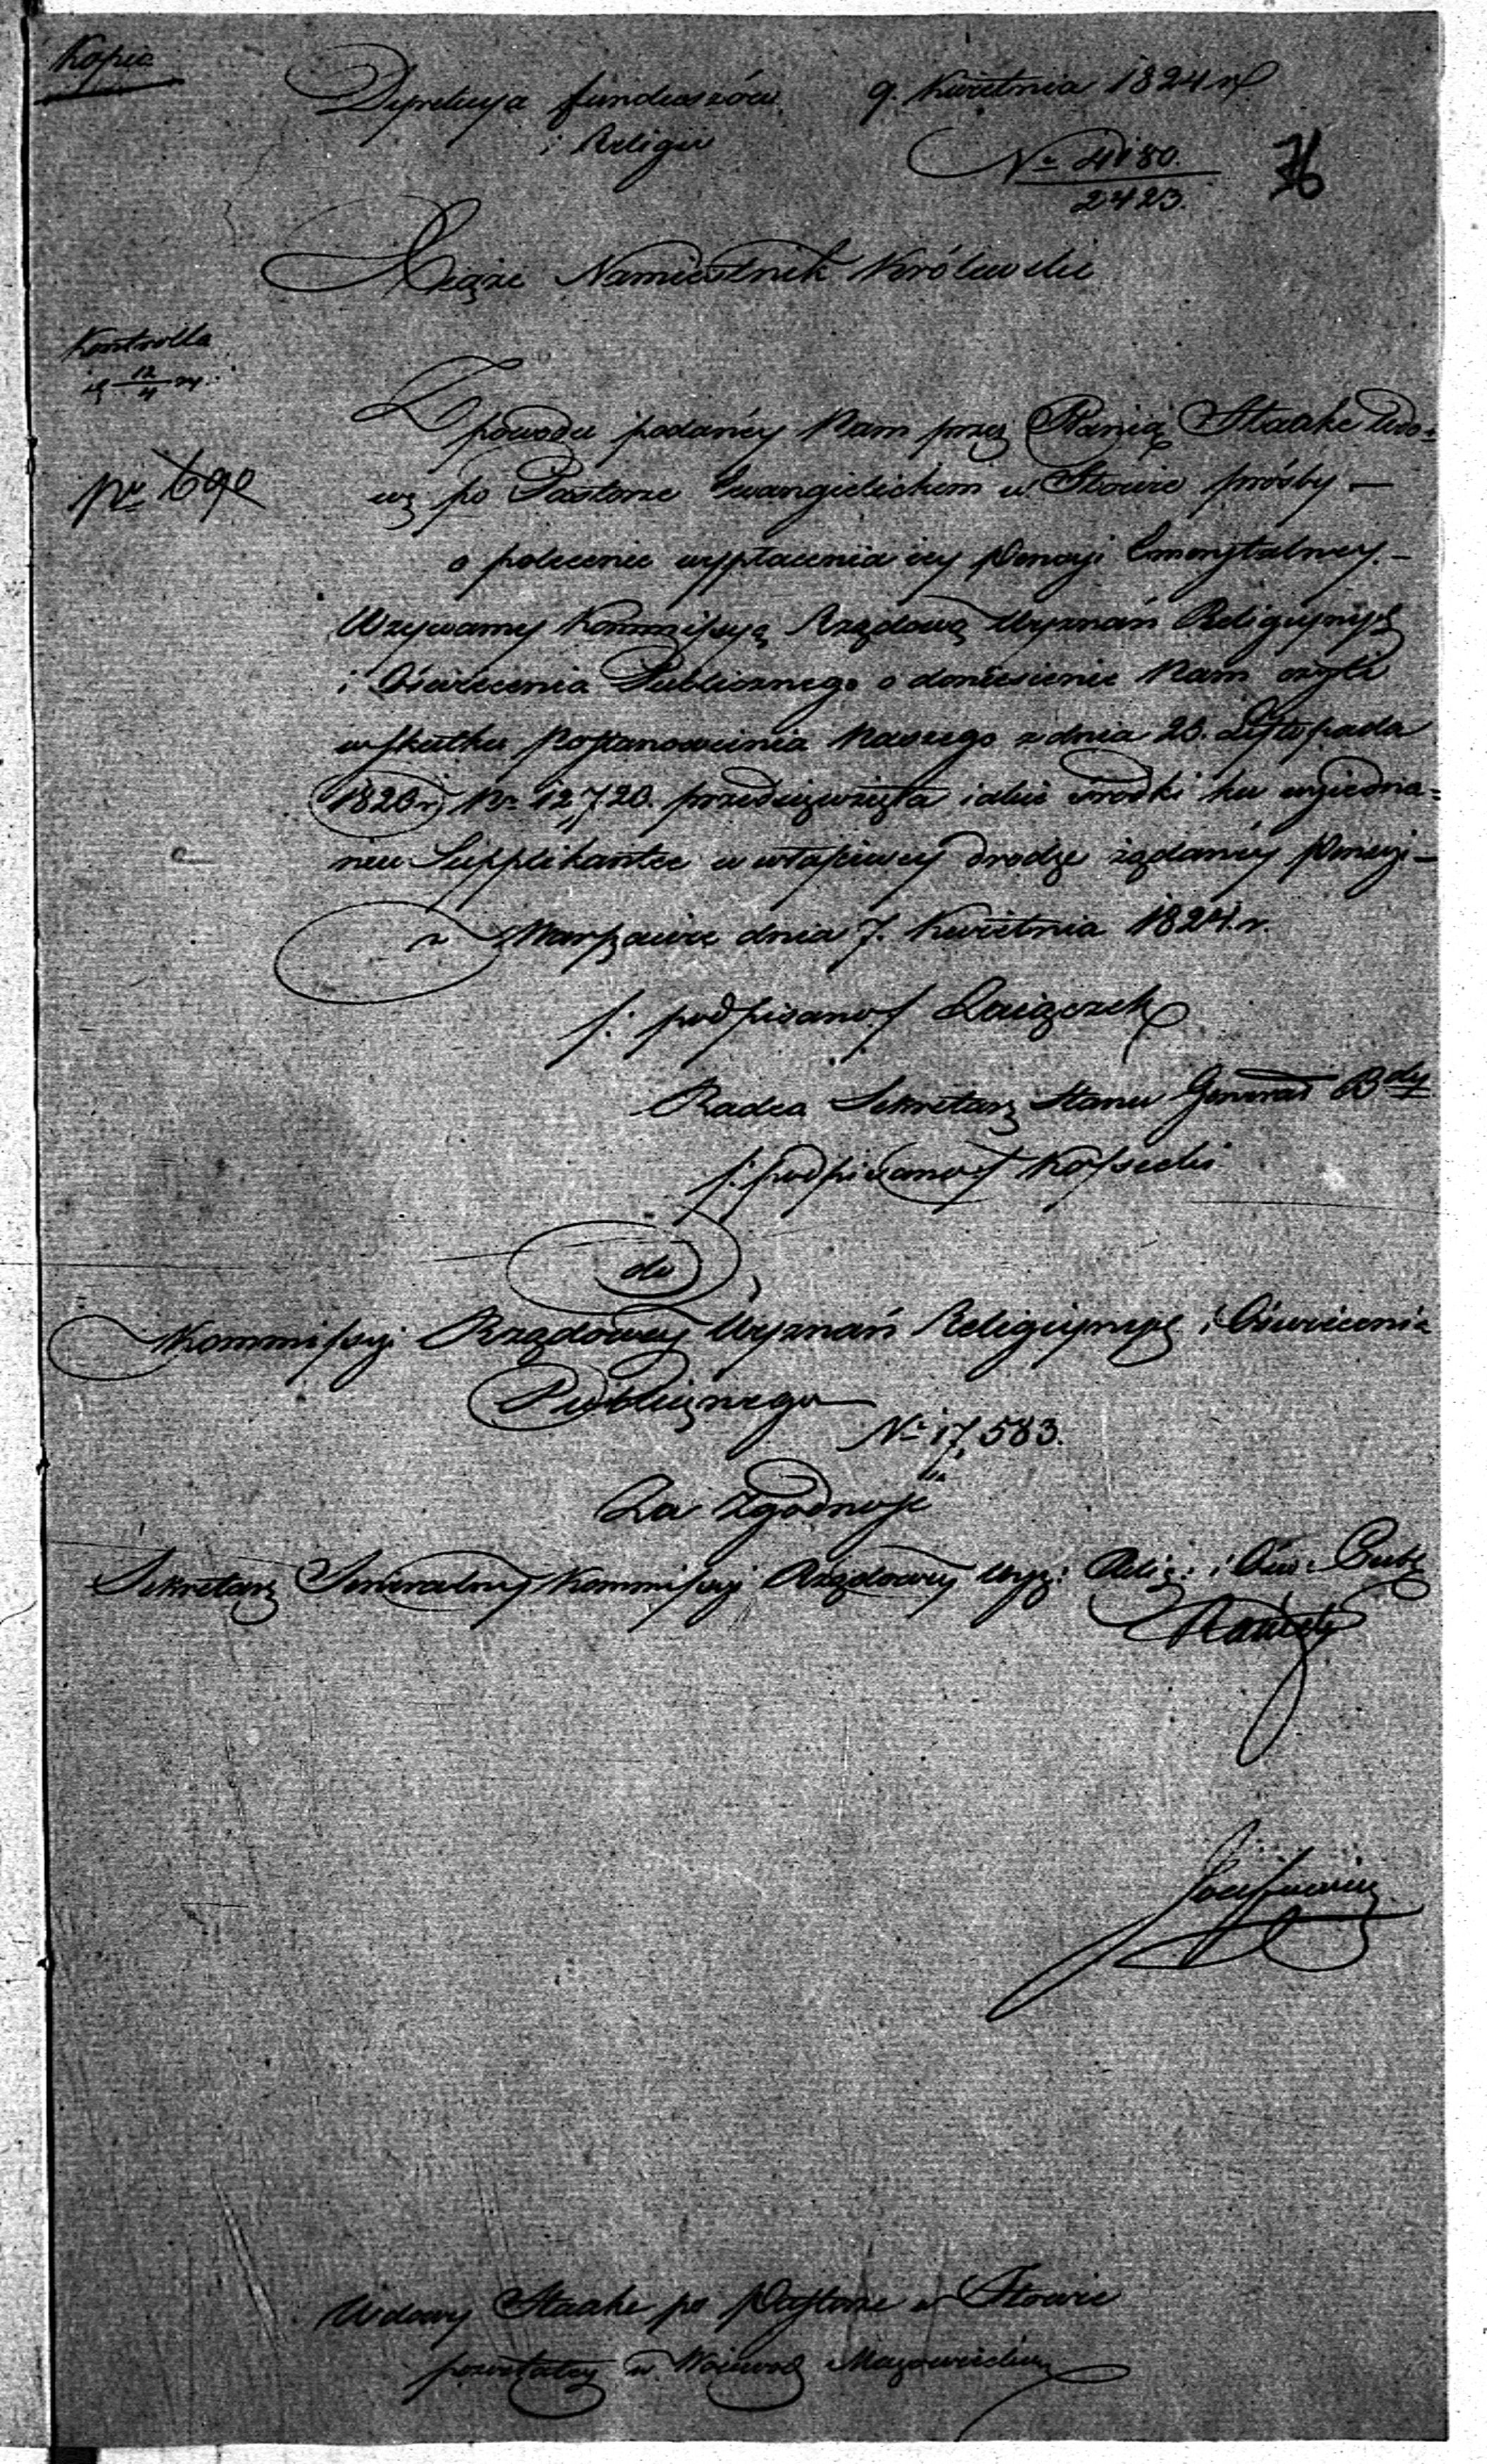 Kopia
Dyrekcya funduszów 9. Kwietnia 1824 r
i Religii
Nro 4180.
2423.
76
Xiąże Namiestnik Królewski
Kontrolla
12
4
Z powodu podanéy Nam przez Panią Staake Wdo=
wę po Pastorze Ewangielickim w Iłowie prośby —
o polecenie wypłacenia iey Pensyi Emerytalney. —
Wzywamy Kommissyą Rządową Wyznań Religijnych
i Oświecenia Publicznego o doniesienie Nam czyli
w skutku Postanowienia Naszego z dnia 23. Listopada
1820 r Nro 12,720. przedsięwzięła iakie środki ku wyiedna=
niu Supplikantce w właściwey drodze żądanéy Pensyi —
w Warszawie dnia 7. Kwietnia 1824. r.
/: podpisano / Zaiączek
Radca Sekretarz Stanu Generał Bdy
/: podpisano / Kossecki
do
Kommissyi Rządowey Wyznań Religijnych i Oświecenia
Publicznego
Nro 17,583.
Za Zgodność
Sekretarz Jeneralny Kommissyi Rządowey Wyz: Relig: i Ośw: Publ
Wdowy Staake po Pastorze w Iłowie
pozostałey w Wojewod Mazowieckim